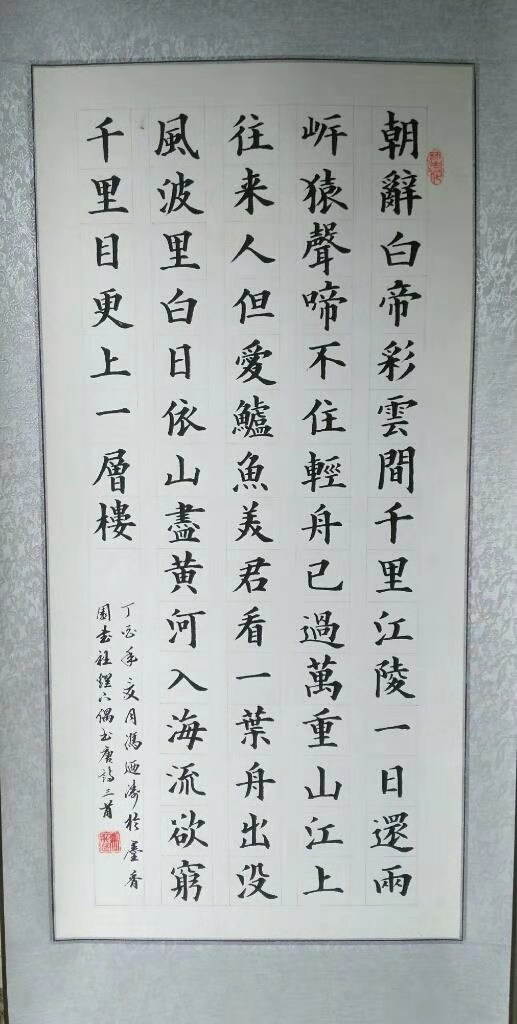 朝辭白帝彩雲間千里江陵一日還兩
岍猿聲啼不住輕舟已過萬重山江上
往来人但愛鱸魚美君看一葉舟出没
風波里白日依山盡黄河入海流欲窮
千里目更上一層樓
丁酉年夏月馮於墨香
園偶书唐詩三首